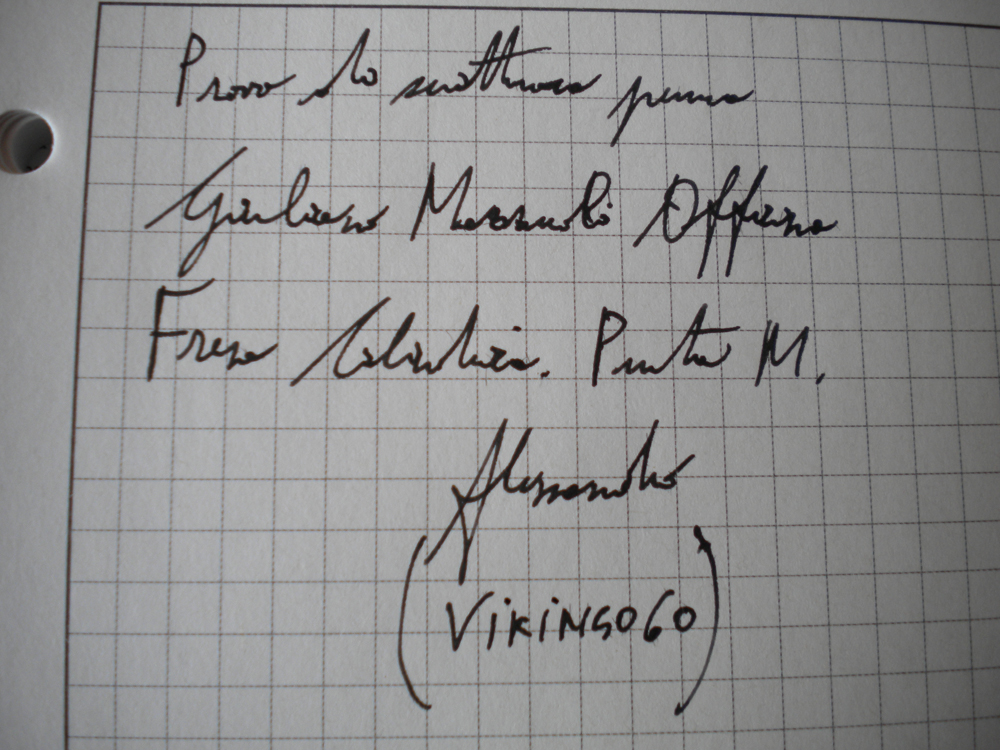 Prova di scrittura penna
Giuliano Mazzuoli Officina
Fresa Cilindrica. Punta M.
Alessandro
(VIKINGO60)